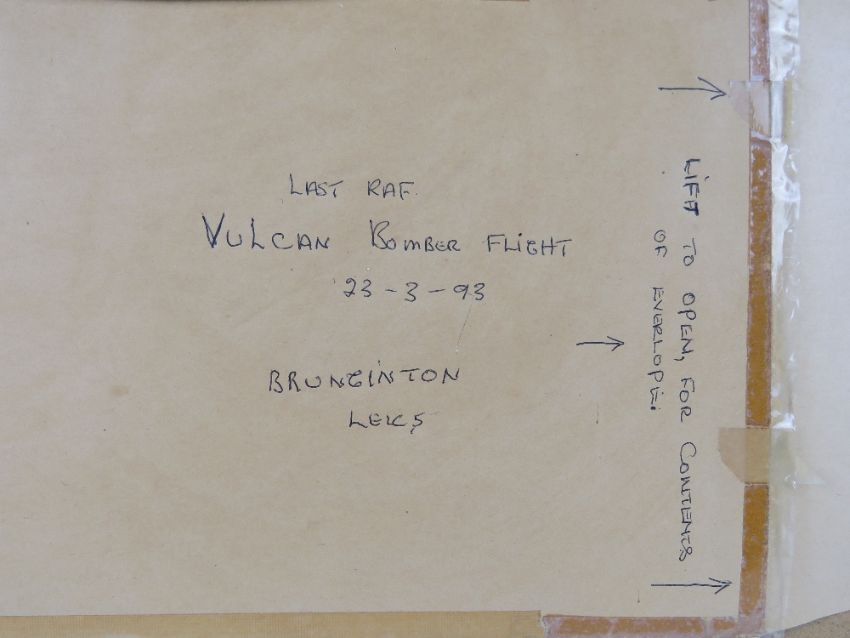 LAST RAF.
VULCAN BOMBER FLIGHT
23-3-93
BRUNGINTON
LEICS
LIFT TO OPEN, FOR CONTENTS
OF ENERLOPE.